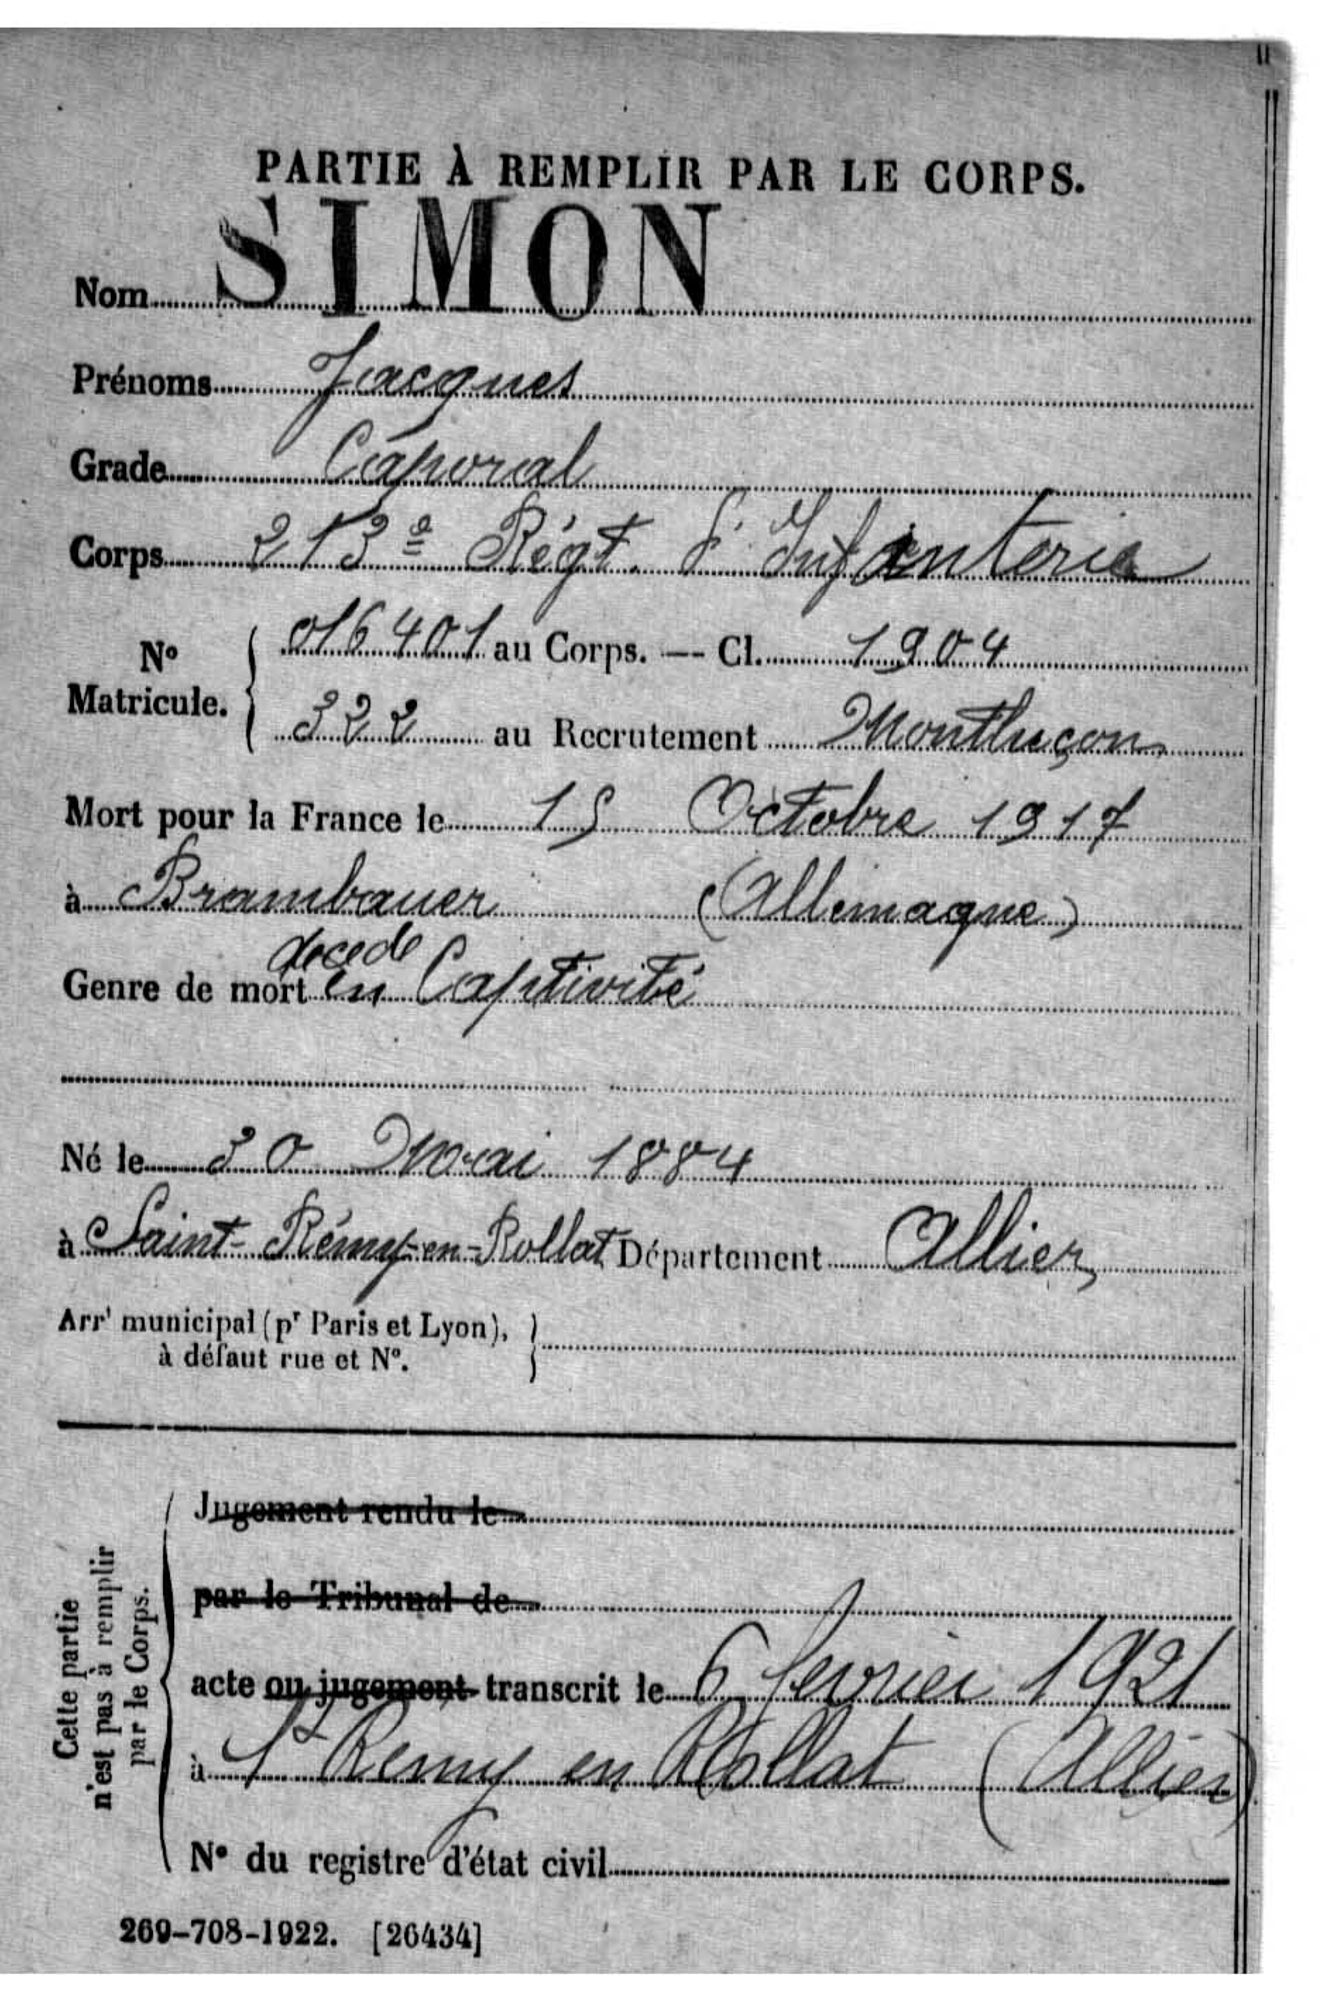 PARTIE À REMPLIR PAR LE CORPS.
Nom SIMON
Prénoms Jacques
Grade Caporal
Corps 213e Régt. d'Infanterie
No Matricule. 016401 au Corps. — Cl. 1904
322 au Recrutement Montluçon
Mort pour la France le 15 Octobre 1917
à Brambauer (Allemagne)
décédé
Genre de mort en Captivité
Né le 30 Mai 1884
à Saint-Rémy-en-Rollat Département Allier
Arrt municipal (pr Paris et Lyon),
à défaut rue et No.
Cette partie n'est pas à remplir par le Corps.
Jugement rendu le
par le Tribunal de
acte ou jugement transcrit le 6 février 1921
à St Remy en Rollat (Allier)
No du registre d'état civil
269-708-1922. [26434]